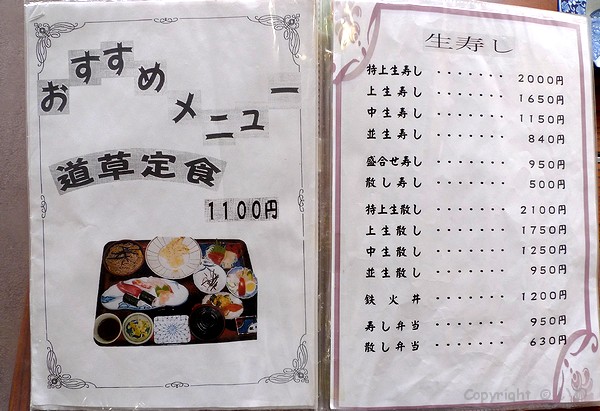 おすすめメニュー
道草定食
1100円
生寿し
特上生寿し ・・・・・・・ 2000円
上生寿し ・・・・・・・ 1650円
中生寿し ・・・・・・・ 1150円
並生寿し ・・・・・・・ 840円
盛合せ寿し ・・・・・・・ 950円
散し寿し ・・・・・・・ 500円
特上生散し ・・・・・・・ 2100円
上生散し ・・・・・・・ 1750円
中生散し ・・・・・・・ 1250円
並生散し ・・・・・・・ 950円
鉄火丼 ・・・・・・・ 1200円
寿し弁当 ・・・・・・・ 950円
散し弁当 ・・・・・・・ 630円
Copyright ©